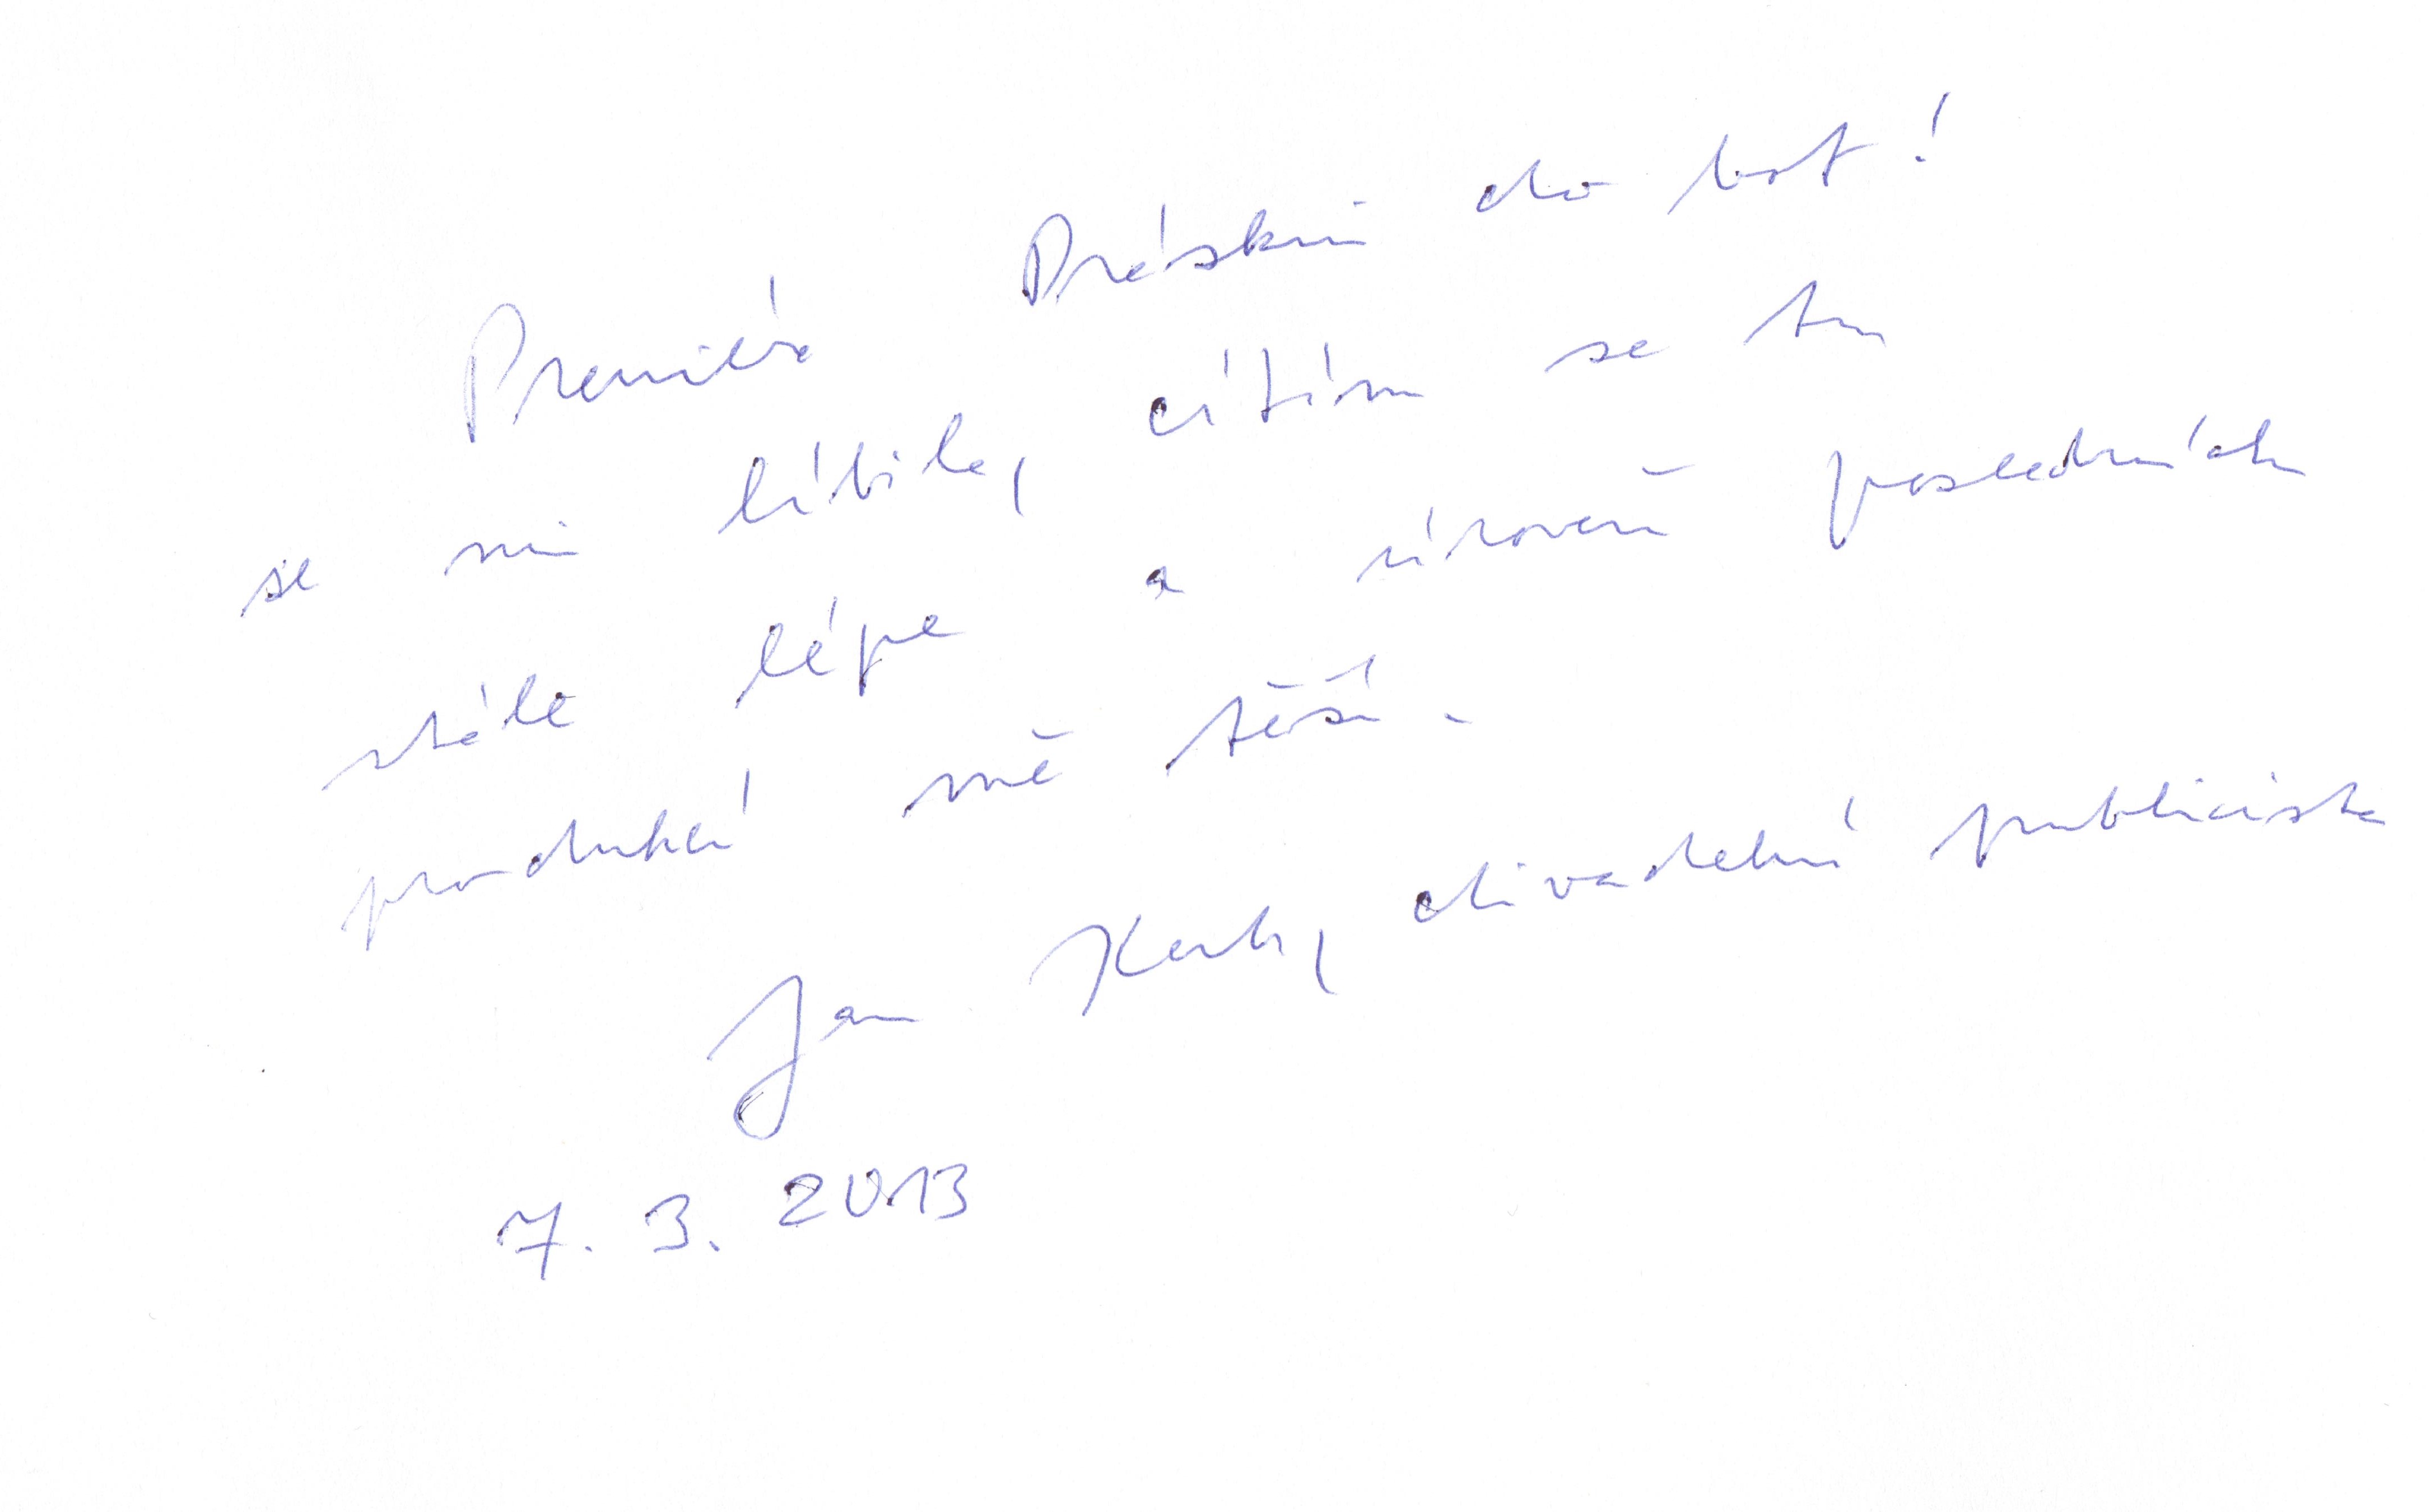 Premiéra Práskni do bot!
se mi líbila, cítím se tu
stále lépe a úroveň posledních
produkcí mě těší.
Jan Kerbr, divadelní publicista
7. 3. 2013